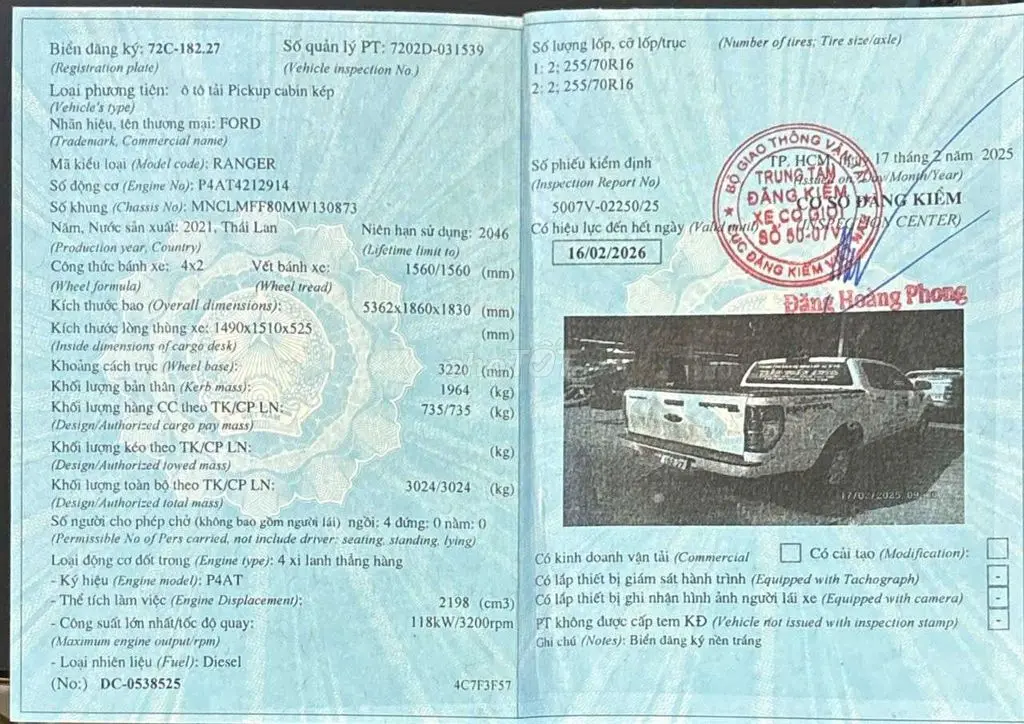 Biển đăng ký: 72C-182.27
Số quản lý PT: 7202D-031539
(Registration plate)
(Vehicle inspection No.)
Loại phương tiện: ô tô tải Pickup cabin kép
(Vehicle's type)
Nhãn hiệu, tên thương mại: FORD
(Trademark, Commercial name)
Mã kiểu loại (Model code): RANGER
Số động cơ (Engine No): P4AT4212914
Số khung (Chassis No): MNCLMFF80MW130873
Năm, Nước sản xuất: 2021, Thái Lan
Niên hạn sử dụng: 2046
(Production year, Country)
(Lifetime limit to)
Công thức bánh xe: 4x2
Vết bánh xe: 1560/1560 (mm)
(Wheel formula)
(Wheel tread)
Kích thước bao (Overall dimensions): 5362x1860x1830 (mm)
Kích thước lòng thùng xe: 1490x1510x525 (mm)
(Inside dimensions of cargo desk)
Khoảng cách trục (Wheel base): 3220 (mm)
Khối lượng bản thân (Kerb mass): 1964 (kg)
Khối lượng hàng CC theo TK/CP LN: 735/735 (kg)
(Design/Authorized cargo pay mass)
Khối lượng kéo theo TK/CP LN: (kg)
(Design/Authorized towed mass)
Khối lượng toàn bộ theo TK/CP LN: 3024/3024 (kg)
(Design/Authorized total mass)
Số người cho phép chở (không bao gồm người lái) ngồi: 4 đứng: 0 nằm: 0
(Permissible No of Pers carried, not include driver: seating, standing, lying)
Loại động cơ đốt trong (Engine type): 4 xi lanh thẳng hàng
- Ký hiệu (Engine model): P4AT
- Thể tích làm việc (Engine Displacement): 2198 (cm3)
- Công suất lớn nhất/tốc độ quay: 118kW/3200rpm
(Maximum engine output/rpm)
- Loại nhiên liệu (Fuel): Diesel
(No:) DC-0538525
4C7F3F57
Số lượng lốp, cỡ lốp/trục (Number of tires; Tire size/axle)
1: 2; 255/70R16
2: 2; 255/70R16
Số phiếu kiểm định
(Inspection Report No)
5007V-02250/25
TP. HCM, ngày 17 tháng 2 năm 2025
(Issued on: Day/Month/Year)
CƠ SỞ ĐĂNG KIỂM
(INSPECTION CENTER)
Có hiệu lực đến hết ngày (Valid until)
16/02/2026
BỘ GIAO THÔNG VẬN TẢI
TRUNG TÂM
ĐĂNG KIỂM
XE CƠ GIỚI
SỐ 50-07V
CỤC ĐĂNG KIỂM VIỆT NAM
Đặng Hoàng Phong
17/02/2025
Có kinh doanh vận tải (Commercial
Có cải tạo (Modification):
Có lắp thiết bị giám sát hành trình (Equipped with Tachograph) -
Có lắp thiết bị ghi nhận hình ảnh người lái xe (Equipped with camera) -
PT không được cấp tem KĐ (Vehicle not issued with inspection stamp) -
Ghi chú (Notes): Biển đăng ký nền trắng